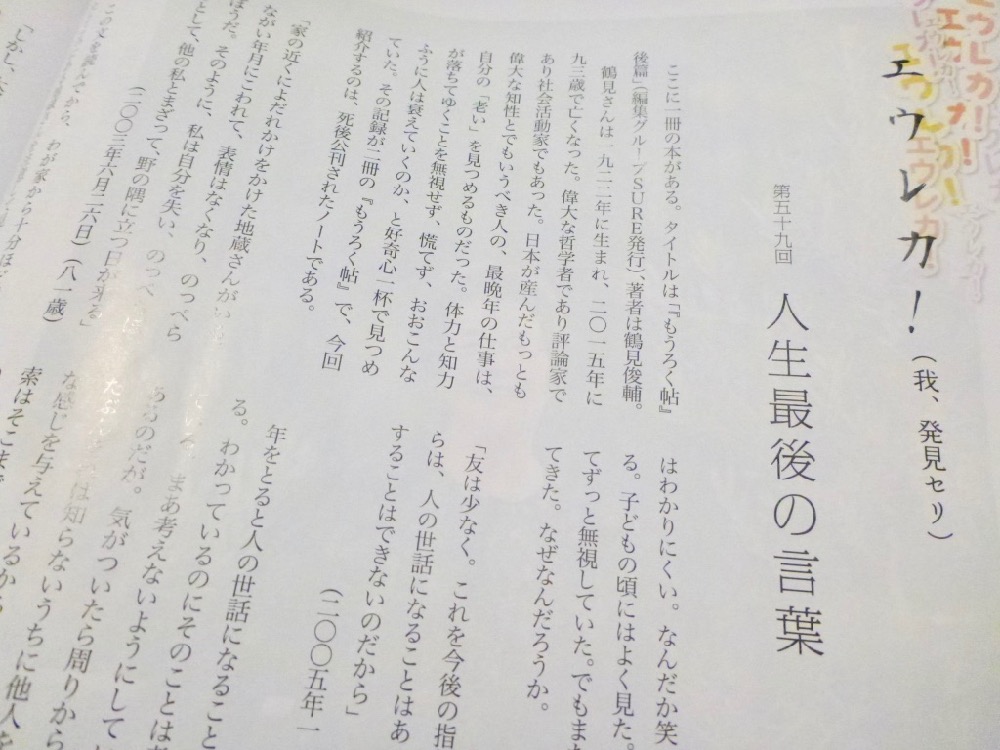 エウレカ！（我、発見セリ）
第五十九回　人生最後の言葉
ここに一冊の本がある。タイトルは『もうろく帖』
後篇」（編集グループSURE発行）、著者は鶴見俊輔。
鶴見さんは一九二二年に生まれ、二〇一五年に
九三歳で亡くなった。偉大な哲学者であり評論家で
あり社会活動家でもあった。日本が産んだもっとも
偉大な知性とでもいうべき人の、最晩年の仕事は、
自分の「老い」を見つめるものだった。体力と知力
が落ちてゆくことを無視せず、慌てず、おおこんな
ふうに人は衰えていくのか、と好奇心一杯で見つめ
ていた。その記録が二冊の『もうろく帖』で、今回
紹介するのは、死後公刊されたノートである。
「家の近くによだれかけをかけた地蔵さんがい
ながい年月にこわれて、表情はなくなり、のっぺら
ぼうだ。そのように、私は自分を失い、のっぺ
として、他の私とまざって、野の隅に立つ日が来る」
（二〇〇三年六月二六日）（八一歳）
この文を読んでから、わが家から十分ほど
「しかし、
はわかりにくい。なんだか笑
る。子どもの頃にはよく見た。
てずっと無視していた。でもまた
てきた。なぜなんだろうか。
「友は少なく。これを今後の指
らは、人の世話になることはあ
することはできないのだから」
（二〇〇五年一
年をとると人の世話になること
る。わかっているのにそのことは
まあ考えないようにして
あるのだが。気がついたら周りから
は知らないうちに他人を
な感じを与えているから
索はそこまで